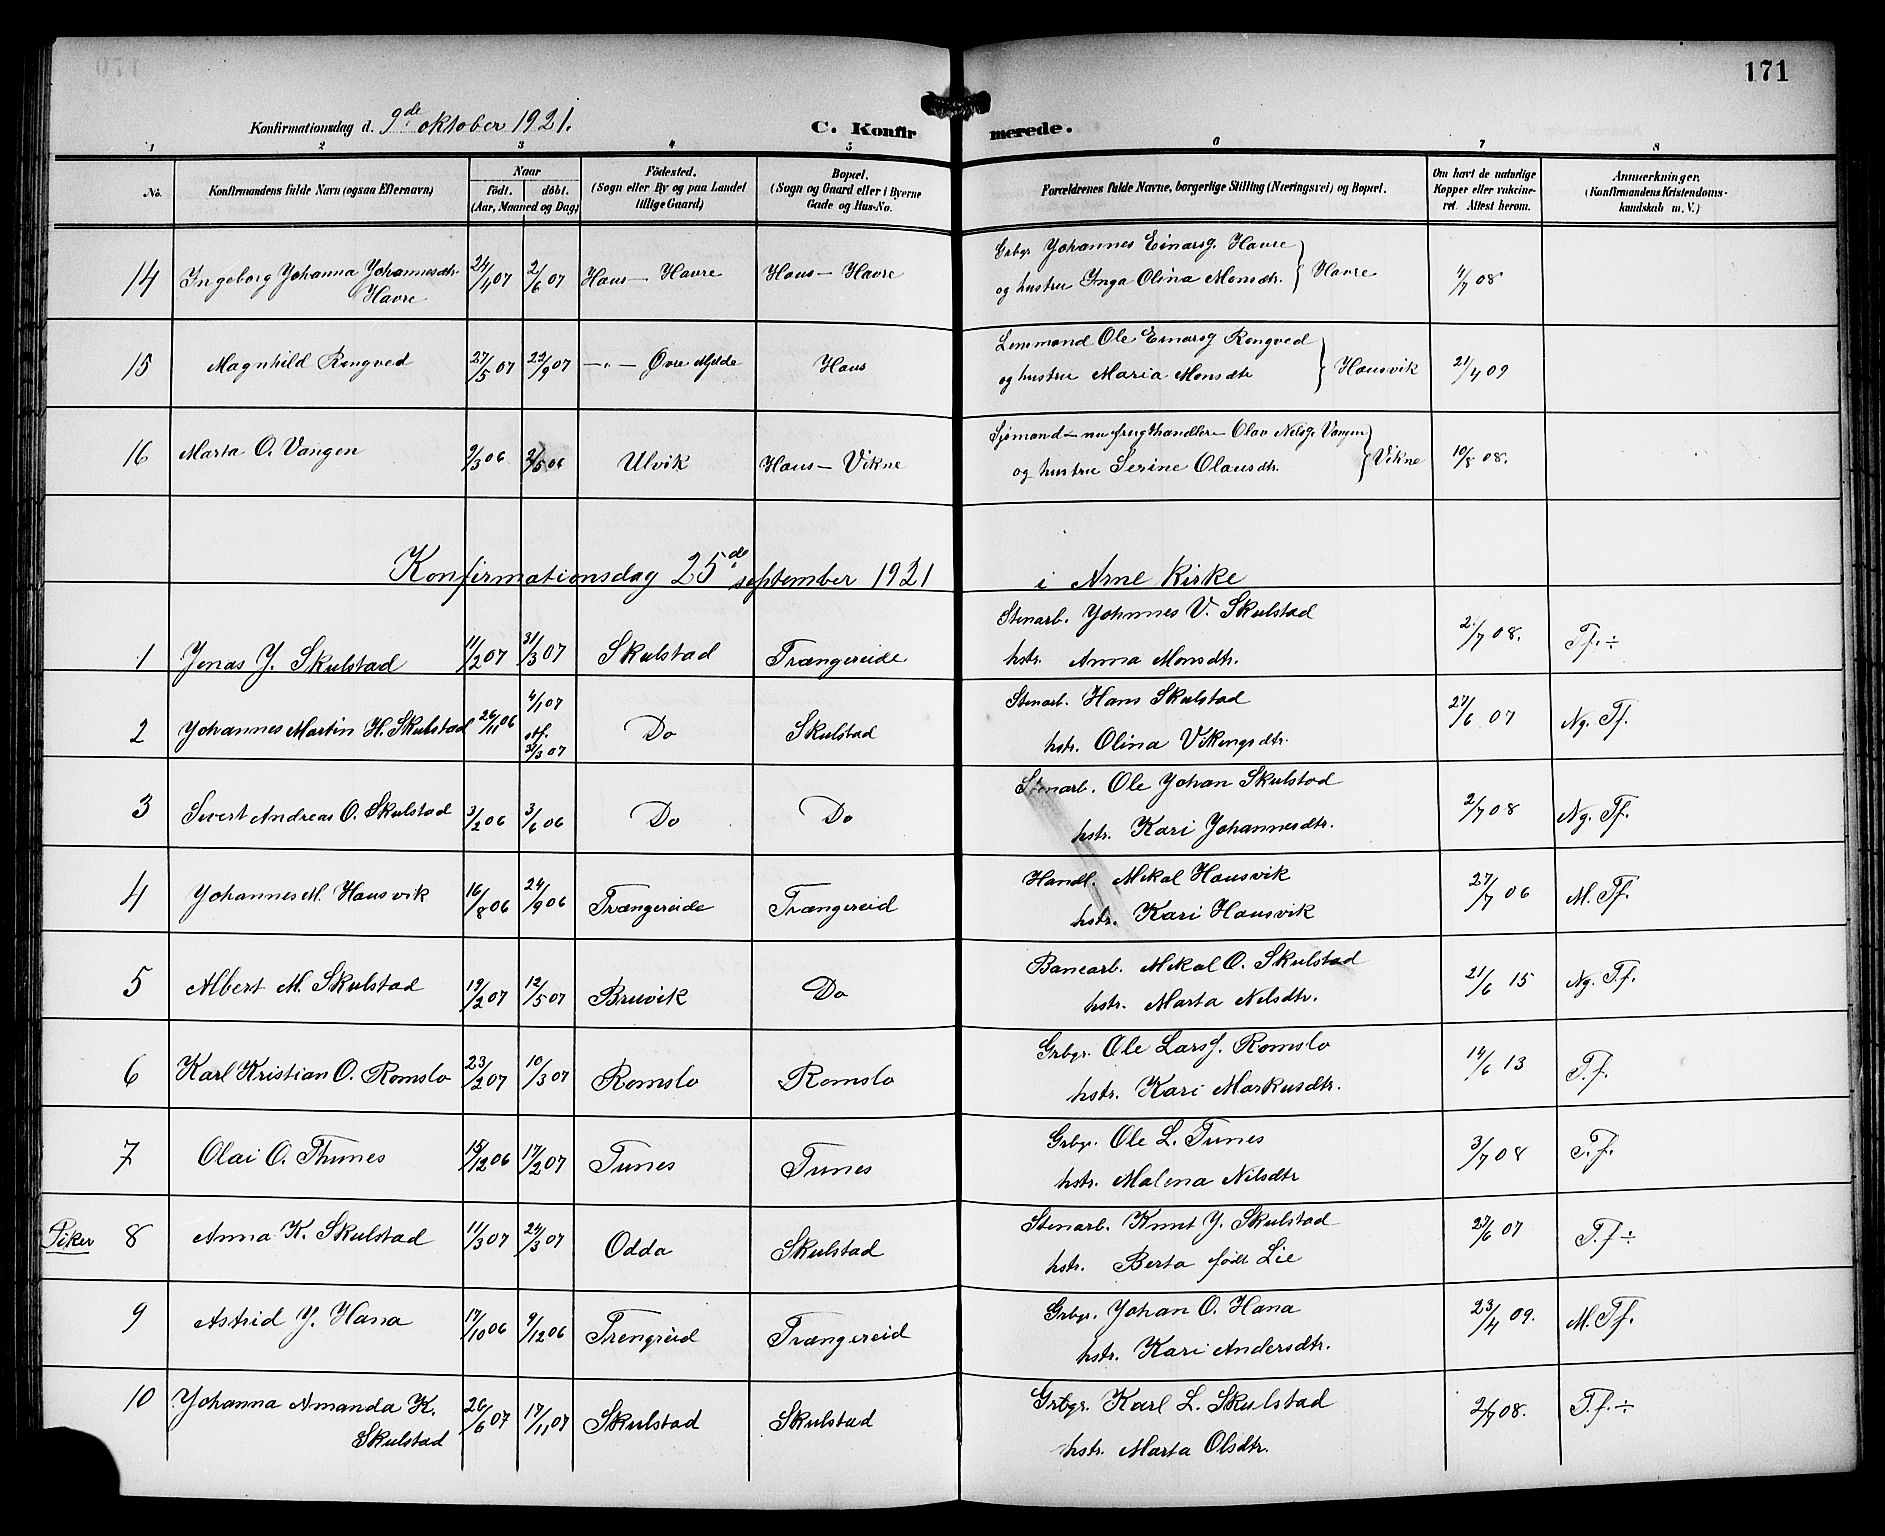 171
Konfirmationsdag d. 9de oktober 1921.
C. Konfirmerede.
1 2 3 4 5 6 7 8
No.
Konfirmandens fulde Navn (ogsaa Efternavn)
Naar
födt. döbt.
(Aar, Maaned og Dag)
Födested.
(Sogn eller By og paa Landet
tillige Gaard)
Bopæl.
(Sogn og Gaard eller i Byerne
Gade og Hus-No.
Forældrenes fulde Navne, borgerlige Stilling (Næringsvei) og Bopæl.
Om havt de naturlige
Kopper eller vakcine-
ret. Attest herom.
Anmærkninger.
(Konfirmandens Kristendoms-
kundskab m. V.)
14 Ingeborg Johanna Johannesdtr. Havre 24/4 07 2/6 07 Haus - Havre Haus - Havre Grbgr. Johannes Einarsg. Havre
og hustru Inga Olina Monsdtr. } Havre 1/7 08
15 Magnhild Rongved 27/5 07 22/9 07 -"- Øvre Mjelde Haus Lensmand Ole Einarsg Rongved
og hustru Maria Monsdtr } Hausvik 21/4 09
16 Marta O. Vangen 9/3 06 /5 06 Ulvik Haus - Vikne Sjömand - nu frugthandler - Olav Nilsg. Vangen
og hustru Serine Olausdtr. } Vikne 10/8 08.
Konfirmationsdag 25de september 1921 i Arne Kirke
1 Jonas J. Skulstad 11/2 07 31/3 07 Skulstad Trængereide Stenarb. Johannes V. Skulstad
hstr. Anna Monsdtr. 2/7 08. Tf. ÷
2 Johannes Martin H. Skulstad 26/11 06 4/1 07 Do Skulstad Stenarb. Hans Skulstad
stf. 3/3 07
hstr. Olina Vikingsdtr. 27/6 07 Ng. Tf.
3 Sivert Andreas O. Skulstad 3/2 06 3/6 06 Do Do Stenarb. Ole Johan Skulstad
hstr. Kari Johannesdtr. 2/7 08 Ng. Tf.
4 Johannes M. Hausvik 16/8 06 24/9 06 Trængereide Trængereid Handl. Mikal Hausvik
hstr. Kari Hausvik 27/7 06 M. Tf.
5 Albert M. Skulstad 19/2 07 12/5 07 Bruvik Do Banearb. Mikal O. Skulstad
hstr. Marta Nilsdtr. 21/6 15 Ng. T.f.
6 Karl Kristian O. Romslo 23/2 07 10/3 07 Romslo Romslo Grbgr. Ole Larsg. Romslo
hstr. Kari Markusdtr. 14/6 13 T.f.
7 Olai O. Thunes 15/12 06 17/2 07 Tunes Tunes Grbgr. Ole L. Tunes
hstr. Malena Nilsdtr 3/7 08 T.f.
Piker 8 Anna K. Skulstad 11/3 07 24/3 07 Odda Skulstad Stenarb. Knut J. Skulstad
hstr. Berta født Lie 27/6 07 T.f ÷
9 Astrid J. Hana 17/10 06 9/12 06 Trengreid Trængereid Grbgr. Johan O. Hana
hstr. Kari Andersdtr. 23/4 09. M. Tf.
10 Johanna Amanda K. Skulstad 26/6 07 17/11 07 Skulstad Skulstad Grbgr. Karl L. Skulstad
hstr. Marta Olsdtr. 2/7 08. T.f. ÷